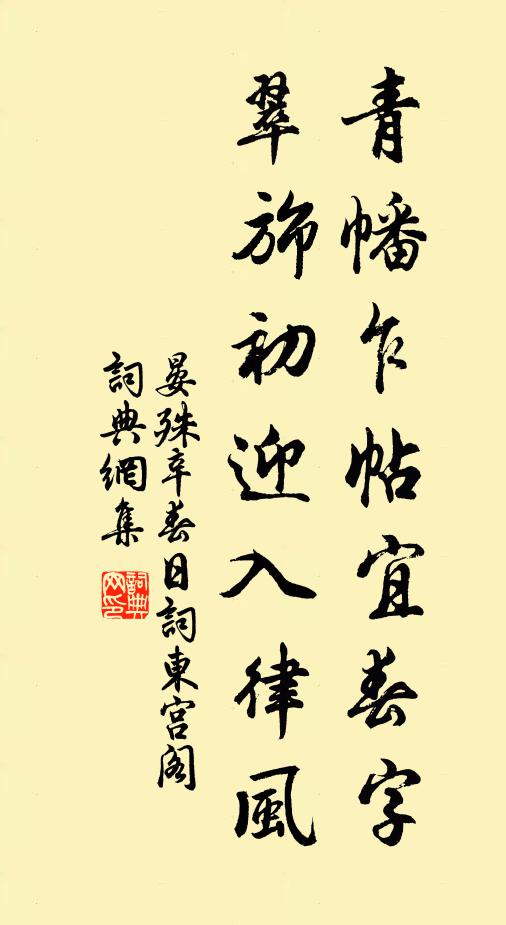 青幡乍帖宜春字
翠旂初迎入律風
晏殊辛春日詞東宮閣
詞典網集
詞典网印